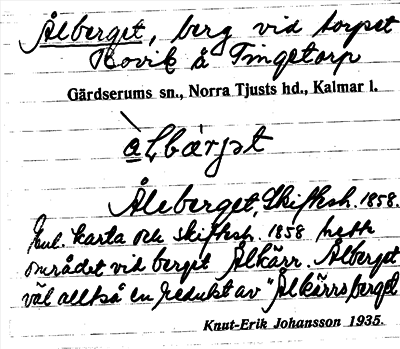 Ålberget, berg vid torpet
Hovik å Tingetorp
Gärdserums sn., Norra Tjusts hd., Kalmar l.
Åleberget, Skifteh. 1858.
Enl. karta och skifteh. 1858 hette
området vid berget Ålkärr. Ålberget
väl alltså en redukt av "Ålkärrsberget
Knut-Erik Johansson 1935.